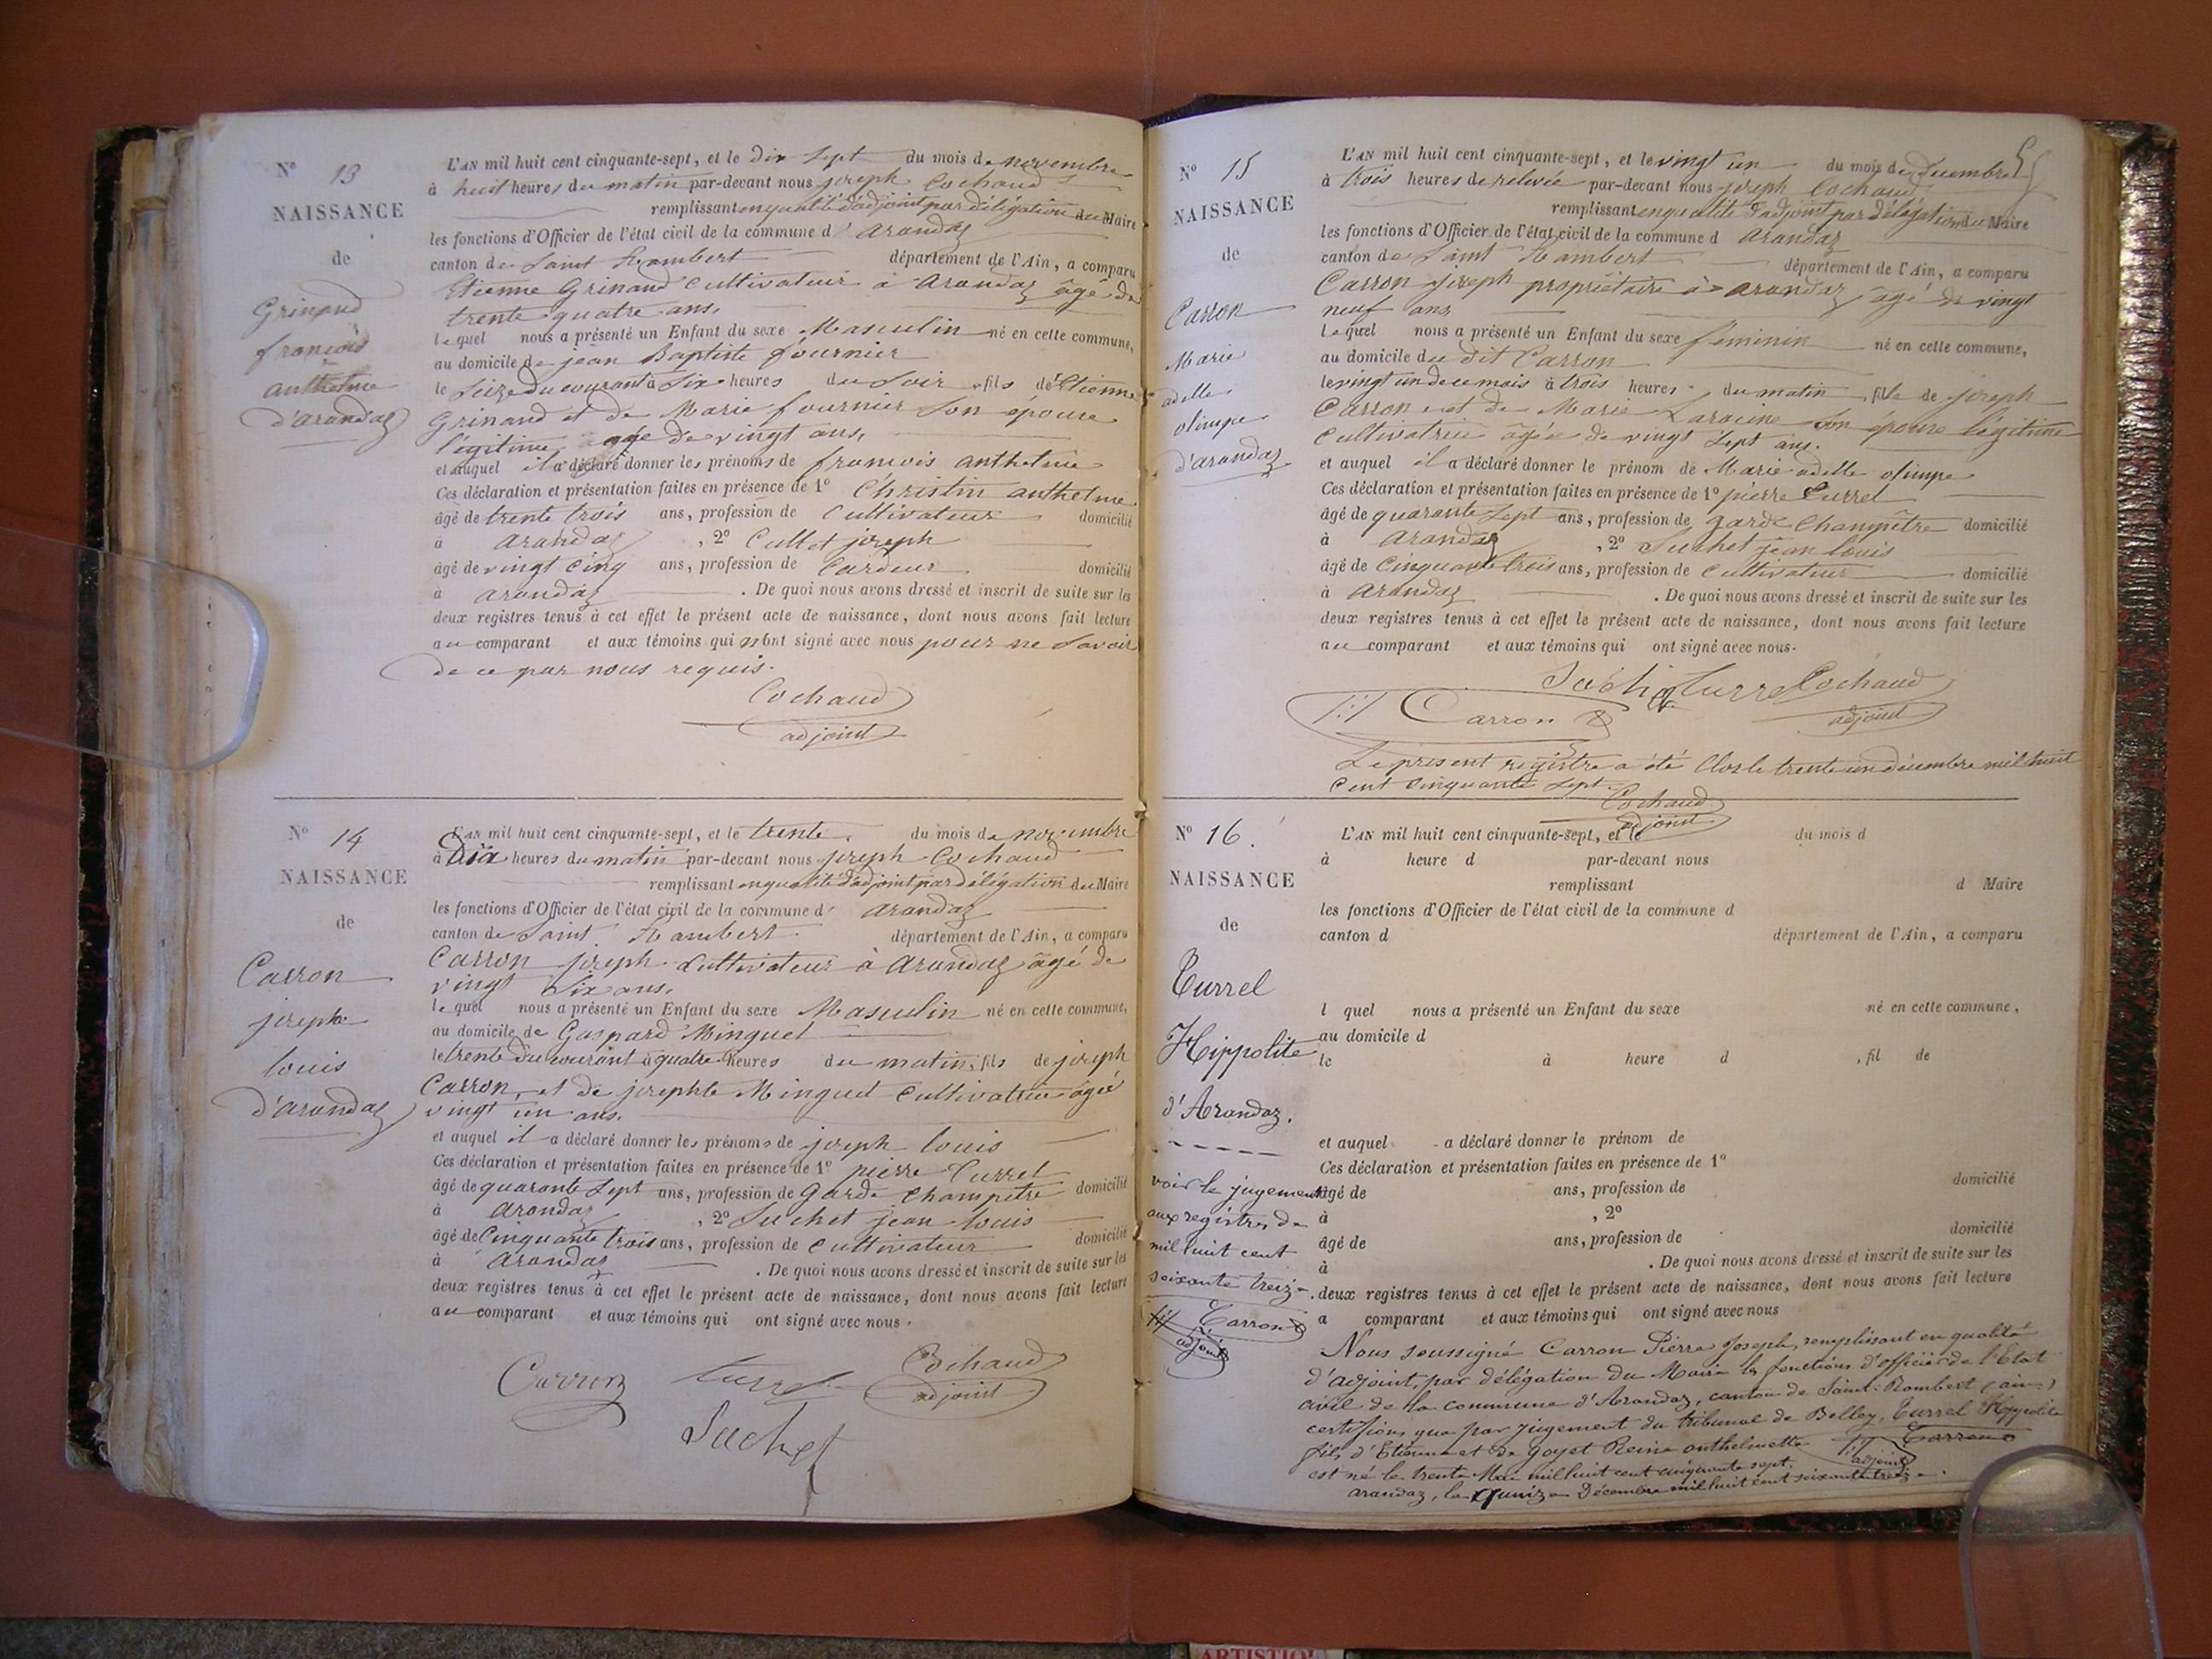 N° 13
NAISSANCE
de
Grinand
françois
anthelme
d'arandaz
L'AN mil huit cent cinquante-sept, et le dix sept du mois de novembre
à huit heures du matin par-devant nous joseph Cochaud
remplissant en qualité d'adjoint par délégation du Maire
les fonctions d'Officier de l'état civil de la commune d' arandaz
canton de Saint Rambert département de l'Ain, a comparu
Etienne Grinand Cultivateur à arandaz âgé de
trente quatre ans,
lequel nous a présenté un Enfant du sexe Masculin né en cette commune,
au domicile de jean Baptiste fournier
le Seize du courant à Six heures du Soir fils d'Etienne
Grinand et de Marie fournier Son épouse
légitime agée de vingt ans,
et auquel il a déclaré donner les prénoms de francois anthelme
Ces déclaration et présentation faites en présence de 1° Christin anthelme
âgé de trente trois ans, profession de Cultivateur domicilié
à arandaz , 2° Cullet joseph
âgé de vingt cinq ans, profession de Cardeur domicilié
à arandaz . De quoi nous avons dressé et inscrit de suite sur les
deux registres tenus à cet effet le présent acte de naissance, dont nous avons fait lecture
au comparant et aux témoins qui n'ont signé avec nous pour ne Savoir
de ce par nous requis.
Cochaud
adjoint
N° 14
NAISSANCE
de
Carron
joseph
louis
d'arandaz
L'AN mil huit cent cinquante-sept, et le trente du mois de novembre
à Dix heures du matin par-devant nous joseph Cochaud
remplissant en qualité d'adjoint par délégation du Maire
les fonctions d'Officier de l'état civil de la commune d' arandaz
canton de Saint Rambert département de l'Ain, a comparu
Carron joseph Cultivateur à arandaz âgé de
vingt Six ans,
lequel nous a présenté un Enfant du sexe Masculin né en cette commune,
au domicile de Gaspard Minguet
le trente du courant à quatre heures du matin, fils de joseph
Carron, et de josephte Minguet Cultivatrice agée
vingt un ans.
et auquel il a déclaré donner les prénoms de joseph louis
Ces déclaration et présentation faites en présence de 1° pierre Turrel
âgé de quarante Sept ans, profession de Garde Champêtre domicilié
à arandaz , 2° Suchet jean louis
âgé de Cinquante trois ans, profession de Cultivateur domicilié
à arandaz . De quoi nous avons dressé et inscrit de suite sur les
deux registres tenus à cet effet le présent acte de naissance, dont nous avons fait lecture
au comparant et aux témoins qui ont signé avec nous.
Carron Turrel Cochaud
adjoint
Suchet
N° 15
NAISSANCE
de
Carron
Marie
adelle
olimpe
d'arandaz
L'AN mil huit cent cinquante-sept, et le vingt un du mois de Decembre
à trois heures de relevée par-devant nous joseph Cochaud
remplissant en qualité d'adjoint par délégation du Maire
les fonctions d'Officier de l'état civil de la commune d arandaz
canton de Saint Rambert département de l'Ain, a comparu
Carron joseph propriétaire à arandaz âgé de vingt
neuf ans
lequel nous a présenté un Enfant du sexe féminin né en cette commune,
au domicile du dit Carron
le vingt un de ce mois à trois heures du matin, fille de joseph
Carron et de Marie Laracine Son épouse légitime
Cultivatrice âgée de vingt Sept ans.
et auquel il a déclaré donner le prénom de Marie adelle olimpe
Ces déclaration et présentation faites en présence de 1° pierre Turrel
âgé de quarante Sept ans, profession de garde Champêtre domicilié
à arandaz , 2° Suchet jean louis
âgé de Cinquante trois ans, profession de Cultivateur domicilié
à arandaz . De quoi nous avons dressé et inscrit de suite sur les
deux registres tenus à cet effet le présent acte de naissance, dont nous avons fait lecture
au comparant et aux témoins qui ont signé avec nous.
Turrel Cochaud
Carron adjoint
Le présent régistre a été Clos le trente un décembre mil huit
Cent Cinquante Sept.
Cochaud
adjoint
N° 16.
NAISSANCE
de
Turrel
Hippolite
d'Arandaz.
voir le jugement
aux registres de
mil huit cent
soixante treize.
Carron
adjoint
L'AN mil huit cent cinquante-sept, et le du mois d
à heure d par-devant nous
remplissant d Maire
les fonctions d'Officier de l'état civil de la commune d
canton d département de l'Ain, a comparu
l quel nous a présenté un Enfant du sexe né en cette commune,
au domicile d
le à heure d , fil de
et auquel a déclaré donner le prénom de
Ces déclaration et présentation faites en présence de 1°
âgé de ans, profession de domicilié
à , 2°
âgé de ans, profession de domicilié
à . De quoi nous avons dressé et inscrit de suite sur les
deux registres tenus à cet effet le présent acte de naissance, dont nous avons fait lecture
a comparant et aux témoins qui ont signé avec nous
Nous soussigné Carron Pierre Joseph, remplissant en qualité
d'adjoint, par délégation du Maire les fonctions d'officier de l'Etat
civil de la commune d'Arandaz, canton de Saint-Rambert (ain)
certifions que par jugement du tribunal de Belley, Turrel Hippolite
fils d'Etienne et de Goyet Reine anthelmette
est né le trente Mai mil huit cent cinquante sept.
arandaz, le quinze Décembre mil huit cent soixante treize.
Carron
adjoint
ARTISTIQU